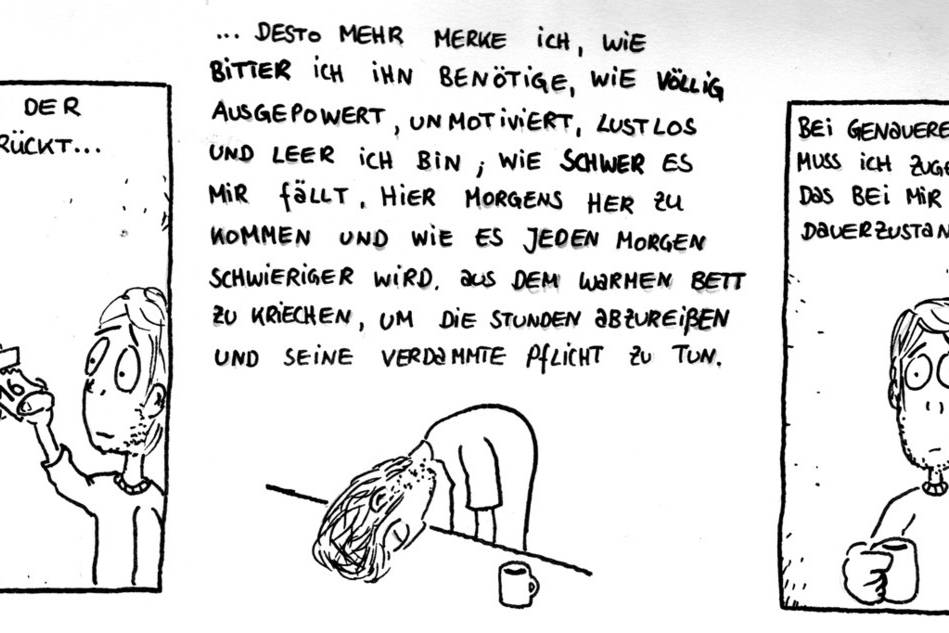 DER
RÜCKT...
16
... DESTO MEHR MERKE ICH, WIE
BITTER ICH IHN BENÖTIGE, WIE VÖLLIG
AUSGEPOWERT, UNMOTIVIERT, LUSTLOS
UND LEER ICH BIN, WIE SCHWER ES
MIR FÄLLT, HIER MORGENS HER ZU
KOMMEN UND WIE ES JEDEN MORGEN
SCHWIERIGER WIRD, AUS DEM WARMEN BETT
ZU KRIECHEN, UM DIE STUNDEN ABZUREIßEN
UND SEINE VERDAMMTE PFLICHT ZU TUN.
BEI GENAUERE
MUSS ICH ZUGE
DAS BEI MIR
DAUERZUSTAN